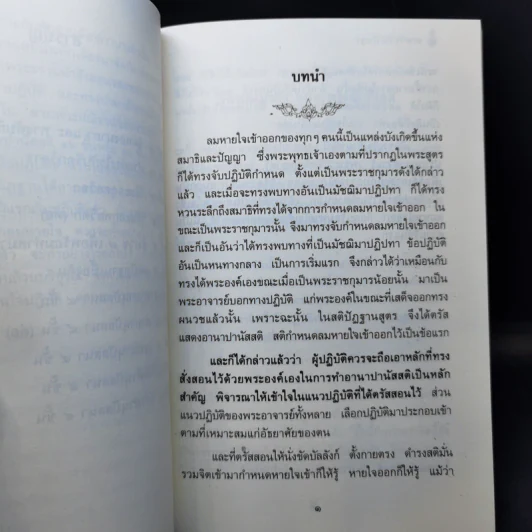 บทนำ
ลมหายใจเข้าออกของทุกๆ คนนี้เป็นแหล่งบังเกิดขึ้นแห่ง
สมาธิและปัญญา ซึ่งพระพุทธเจ้าเองตามที่ปรากฏในพระสูตร
ก็ได้ทรงจับปฏิบัติกำหนด ตั้งแต่เป็นพระราชกุมารดังได้กล่าว
แล้ว และเมื่อจะทรงพบทางอันเป็นมัชฌิมาปฏิปทา ก็ได้ทรง
หวนระลึกถึงสมาธิที่ทรงได้จากการกำหนดลมหายใจเข้าออก ใน
ขณะเป็นพระราชกุมารนั้น จึงมาทรงจับกำหนดลมหายใจเข้าออก
และก็เป็นอันว่าได้ทรงพบทางที่เป็นมัชฌิมาปฏิปทา ข้อปฏิบัติ
อันเป็นหนทางกลาง เป็นการเริ่มแรก จึงกล่าวได้ว่าเหมือนกับ
ทรงได้พระองค์เองขณะเมื่อเป็นพระราชกุมารน้อยนั้น มาเป็น
พระอาจารย์บอกทางปฏิบัติ แก่พระองค์ในขณะที่เสด็จออกทรง
ผนวชแล้วนั้น เพราะฉะนั้น ในสติปัฏฐานสูตร จึงได้ตรัส
แสดงอานาปานัสสติ สติกำหนดลมหายใจเข้าออกไว้เป็นข้อแรก
และก็ได้กล่าวแล้วว่า ผู้ปฏิบัติควรจะถือเอาหลักที่ทรง
สั่งสอนไว้ด้วยพระองค์เองในการทำอานาปานัสสติเป็นหลัก
สำคัญ พิจารณาให้เข้าใจในแนวปฏิบัติที่ได้ตรัสสอนไว้ ส่วน
แนวปฏิบัติของพระอาจารย์ทั้งหลาย เลือกปฏิบัติมาประกอบเข้า
ตามที่เหมาะสมแก่อัธยาศัยของตน
และที่ตรัสสอนให้นั่งขัดบัลลังก์ ตั้งกายตรง ดำรงสติมั่น
รวมจิตเข้ามากำหนดหายใจเข้าก็ให้รู้ หายใจออกก็ให้รู้ แม้ว่า
๑